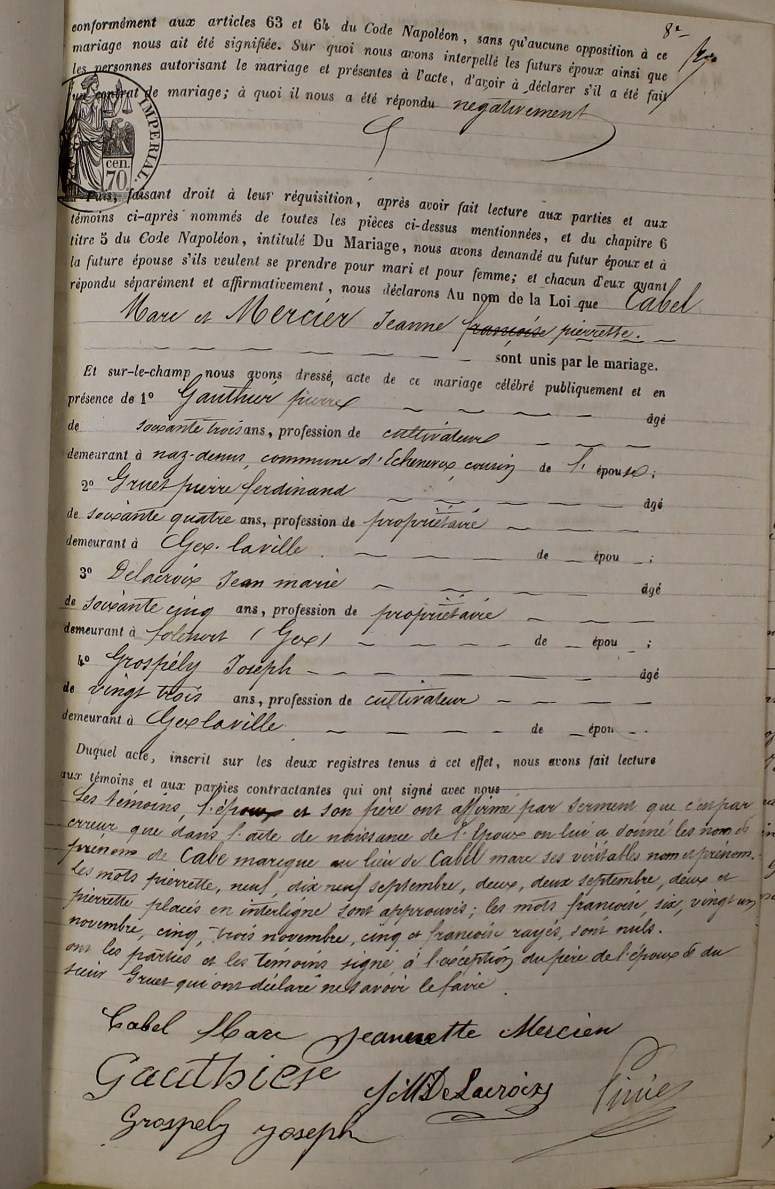 conformément aux articles 63 et 64 du Code Napoléon, sans qu'aucune opposition à ce
mariage nous ait été signifiée. Sur quoi nous avons interpellé les futurs époux ainsi que
les personnes autorisant le mariage et présentes à l'acte, d'avoir à déclarer s'il a été fait
un contrat de mariage; à quoi il nous a été répondu negativement
IMPERIAL.
cen.
70
Puis, faisant droit à leur réquisition, après avoir fait lecture aux parties et aux
témoins ci-après nommés de toutes les pièces ci-dessus mentionnées, et du chapitre 6
titre 5 du Code Napoléon, intitulé Du Mariage, nous avons demandé au futur époux et à
la future épouse s'ils veulent se prendre pour mari et pour femme; et chacun d'eux ayant
répondu séparément et affirmativement, nous déclarons Au nom de la Loi que Cabel
Marc et Mercier Jeanne françoise pierrette.
sont unis par le mariage.
Et sur-le-champ nous avons dressé acte de ce mariage célébré publiquement et en
présence de 1º Gauthier pierre âgé
de soixante trois ans, profession de cultivateur
demeurant à naz-dessus, commune d'Echenevex, cousin de l'épouse;
2º Gruet pierre ferdinand âgé
de soixante quatre ans, profession de propriétaire
demeurant à Gex-laville de épou ;
3º Delacroix Jean marie âgé
de soixante cinq ans, profession de propriétaire
demeurant à (Gex) de épou ;
4º Grospély Joseph âgé
de vingt trois ans, profession de cultivateur
demeurant à Gex laville de épou
Duquel acte, inscrit sur les deux registres tenus à cet effet, nous avons fait lecture
aux témoins et aux parties contractantes qui ont signé avec nous
Les témoins, l'époux et son père ont affirmé par serment que c'est par
erreur que dans l'acte de naissance de l'époux on lui a donné les nom et
prénom de Cabe marque au lieu de Cabel marc ses véritables nom et prénom.
les mots pierrette, neuf, dix neuf septembre, deux, deux septembre, deux et
pierrette placés en interligne sont approuvés; les mots francoise, six, vingt un
novembre, cinq, trois novembre, cinq et francoise rayés, sont nuls.
ont les parties et les temoins signé à l'exception du père de l'époux et du
sieur Gruet qui ont déclaré ne savoir le faire.
Cabel Marc Jeannette Mercier
Gauthier J M Delacroix
Grospely Joseph